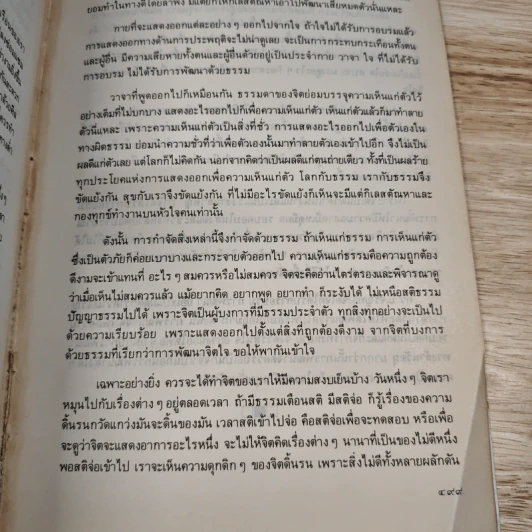 ยอมทำในทางดีโดยลำพัง มีแต่ยกให้กิเลสตัณหาเอาไปพัฒนาเสียหมดตัวนั่นแหละ
กายที่จะแสดงออกแต่ละอย่าง ๆ ออกไปจากใจ ถ้าใจไม่ได้รับการอบรมแล้ว
การแสดงออกทางด้านการประพฤติจะไม่น่าดูเลย จะเป็นการกระทบกระเทือนทั้งตน
และผู้อื่น มีความเสียหายทั้งตนและผู้อื่นด้วยอยู่เป็นประจำกาย วาจา ใจ ที่ไม่ได้รับ
การอบรม ไม่ได้รับการพัฒนาด้วยธรรม
วาจาที่พูดออกไปก็เหมือนกัน ธรรมดาของจิตย่อมบรรจุความเห็นแก่ตัวไว้
อย่างเต็มที่ไม่บกบาง แสดงอะไรออกไปก็เพื่อความเห็นแก่ตัว เห็นแก่ตัวแล้วก็มาทำลาย
ตัวนี่แหละ เพราะความเห็นแก่ตัวเป็นสิ่งที่ชั่ว การแสดงอะไรออกไปเพื่อตัวเองใน
ทางผิดธรรม ย่อมนำความชั่วที่ว่าเพื่อตัวเองนั้นมาทำลายตัวเองเข้าไปอีก จึงไม่เป็น
ผลดีแก่ตัวเลย แต่โลกก็ไม่คิดกัน นอกจากคิดว่าเป็นผลดีแก่ตนถ่ายเดียว ทั้งที่เป็นผลร้าย
ทุกประโยคแห่งการแสดงออกเพื่อความเห็นแก่ตัว โลกกับธรรม เรากับธรรมจึง
ขัดแย้งกัน สุขกับเราจึงขัดแย้งกัน ที่ไม่มีอะไรขัดแย้งก็เห็นจะมีแต่กิเลสตัณหาและ
กองทุกข์ทำงานบนหัวใจคนเท่านั้น
ดังนั้น การกำจัดสิ่งเหล่านี้จึงกำจัดด้วยธรรม ถ้าเห็นแก่ธรรม การเห็นแก่ตัว
ซึ่งเป็นตัวภัยก็ค่อยเบาบางและกระจายตัวออกไป ความเห็นแก่ธรรมคือความถูกต้อง
ดีงามจะเข้าแทนที่ อะไร ๆ สมควรหรือไม่สมควร จิตจะคิดอ่านไตร่ตรองและพิจารณาดู
ว่าเมื่อเห็นไม่สมควรแล้ว แม้อยากคิด อยากพูด อยากทำ ก็ระงับได้ ไม่เหนือสติธรรม
ปัญญาธรรมไปได้ เพราะจิตเป็นผู้บงการที่มีธรรมประจำตัว ทุกสิ่งทุกอย่างจะเป็นไป
ด้วยความเรียบร้อย เพราะแสดงออกไปตั้งแต่สิ่งที่ถูกต้องดีงาม จากจิตที่บงการ
ด้วยธรรมที่เรียกว่าการพัฒนาจิตใจ ขอให้พากันเข้าใจ
เฉพาะอย่างยิ่ง ควรจะได้ทำจิตของเราให้มีความสงบเย็นบ้าง วันหนึ่ง ๆ จิตเรา
หมุนไปกับเรื่องต่าง ๆ อยู่ตลอดเวลา ถ้ามีธรรมเตือนสติ มีสติจ่อ ก็รู้เรื่องของความ
ดิ้นรนกวัดแกว่งมันจะดิ้นของมัน เวลาสติเข้าไปจ่อ คือสติจ่อเพื่อจะทดสอบ หรือเพื่อ
จะดูว่าจิตจะแสดงอาการอะไรหนึ่ง จะไม่ให้จิตคิดเรื่องต่าง ๆ นานาที่เป็นของไม่ดีหนึ่ง
พอสติจ่อเข้าไป เราจะเห็นความดุกดิก ๆ ของจิตดิ้นรน เพราะสิ่งไม่ดีทั้งหลายผลักดัน
๔๙๙